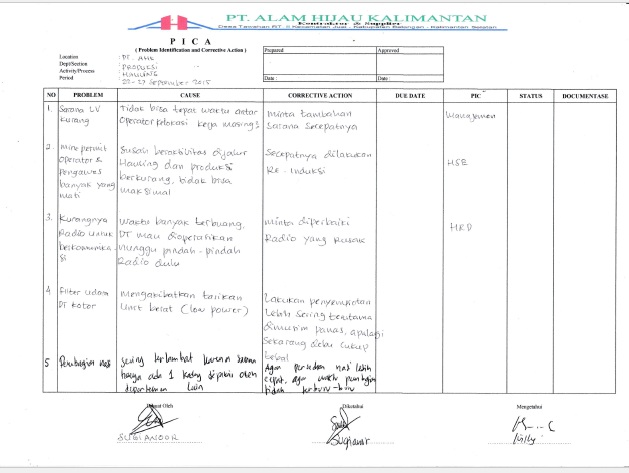 PT. ALAM HIJAU KALIMANTAN
Kontraktor & Supplier
Desa Tawahan RT. II Kecamatan Juai - Kabupaten Balangan - Kalimantan Selatan
P I C A
( Problem Identification and Corrective Action )
Location : PT. AHK
Dept/Section : PRODUKSI
Activity/Process : HAULING
Period : 22-27 September 2015
Prepared Approved
Date : Date :
NO PROBLEM CAUSE CORRECTIVE ACTION DUE DATE PIC STATUS DOCUMENTASE
1. Sarana LV kurang
Tidak bisa tepat waktu antar
Operator kelokasi kerja masing2
Minta tambahan
Sarana Secepatnya
Manajemen
2. Mine permit
Operator &
Pengawas
banyak yang
mati
Susah beraktivitas dijalur
Hauling dan produksi
berkurang, tidak bisa
maksimal
Secepatnya dilakukan
RE-Induksi
HSE
3. Kurangnya
Radio untuk
berkomunika
si
Waktu banyak terbuang,
DT mau dioperasikan
nunggu pindah-pindah
Radio dulu
Minta diperbaiki
Radio yang rusak
HRD
4 Filter udara
DT kotor
Mengakibatkan tarikan
Unit berat (low power)
Lakukan penyemprotan
lebih sering terutama
dimusim panas, apalagi
Sekarang debu cukup
tebal
5 nasi
sering terlambat karena sarana
hanya ada 1 kadang dipakai oleh
departemen lain
Agar nasi lebih
cepat, agar
tidak terburu-buru
Dibuat Oleh Diketahui Mengetahui
SUGIANOOR
Sugianor